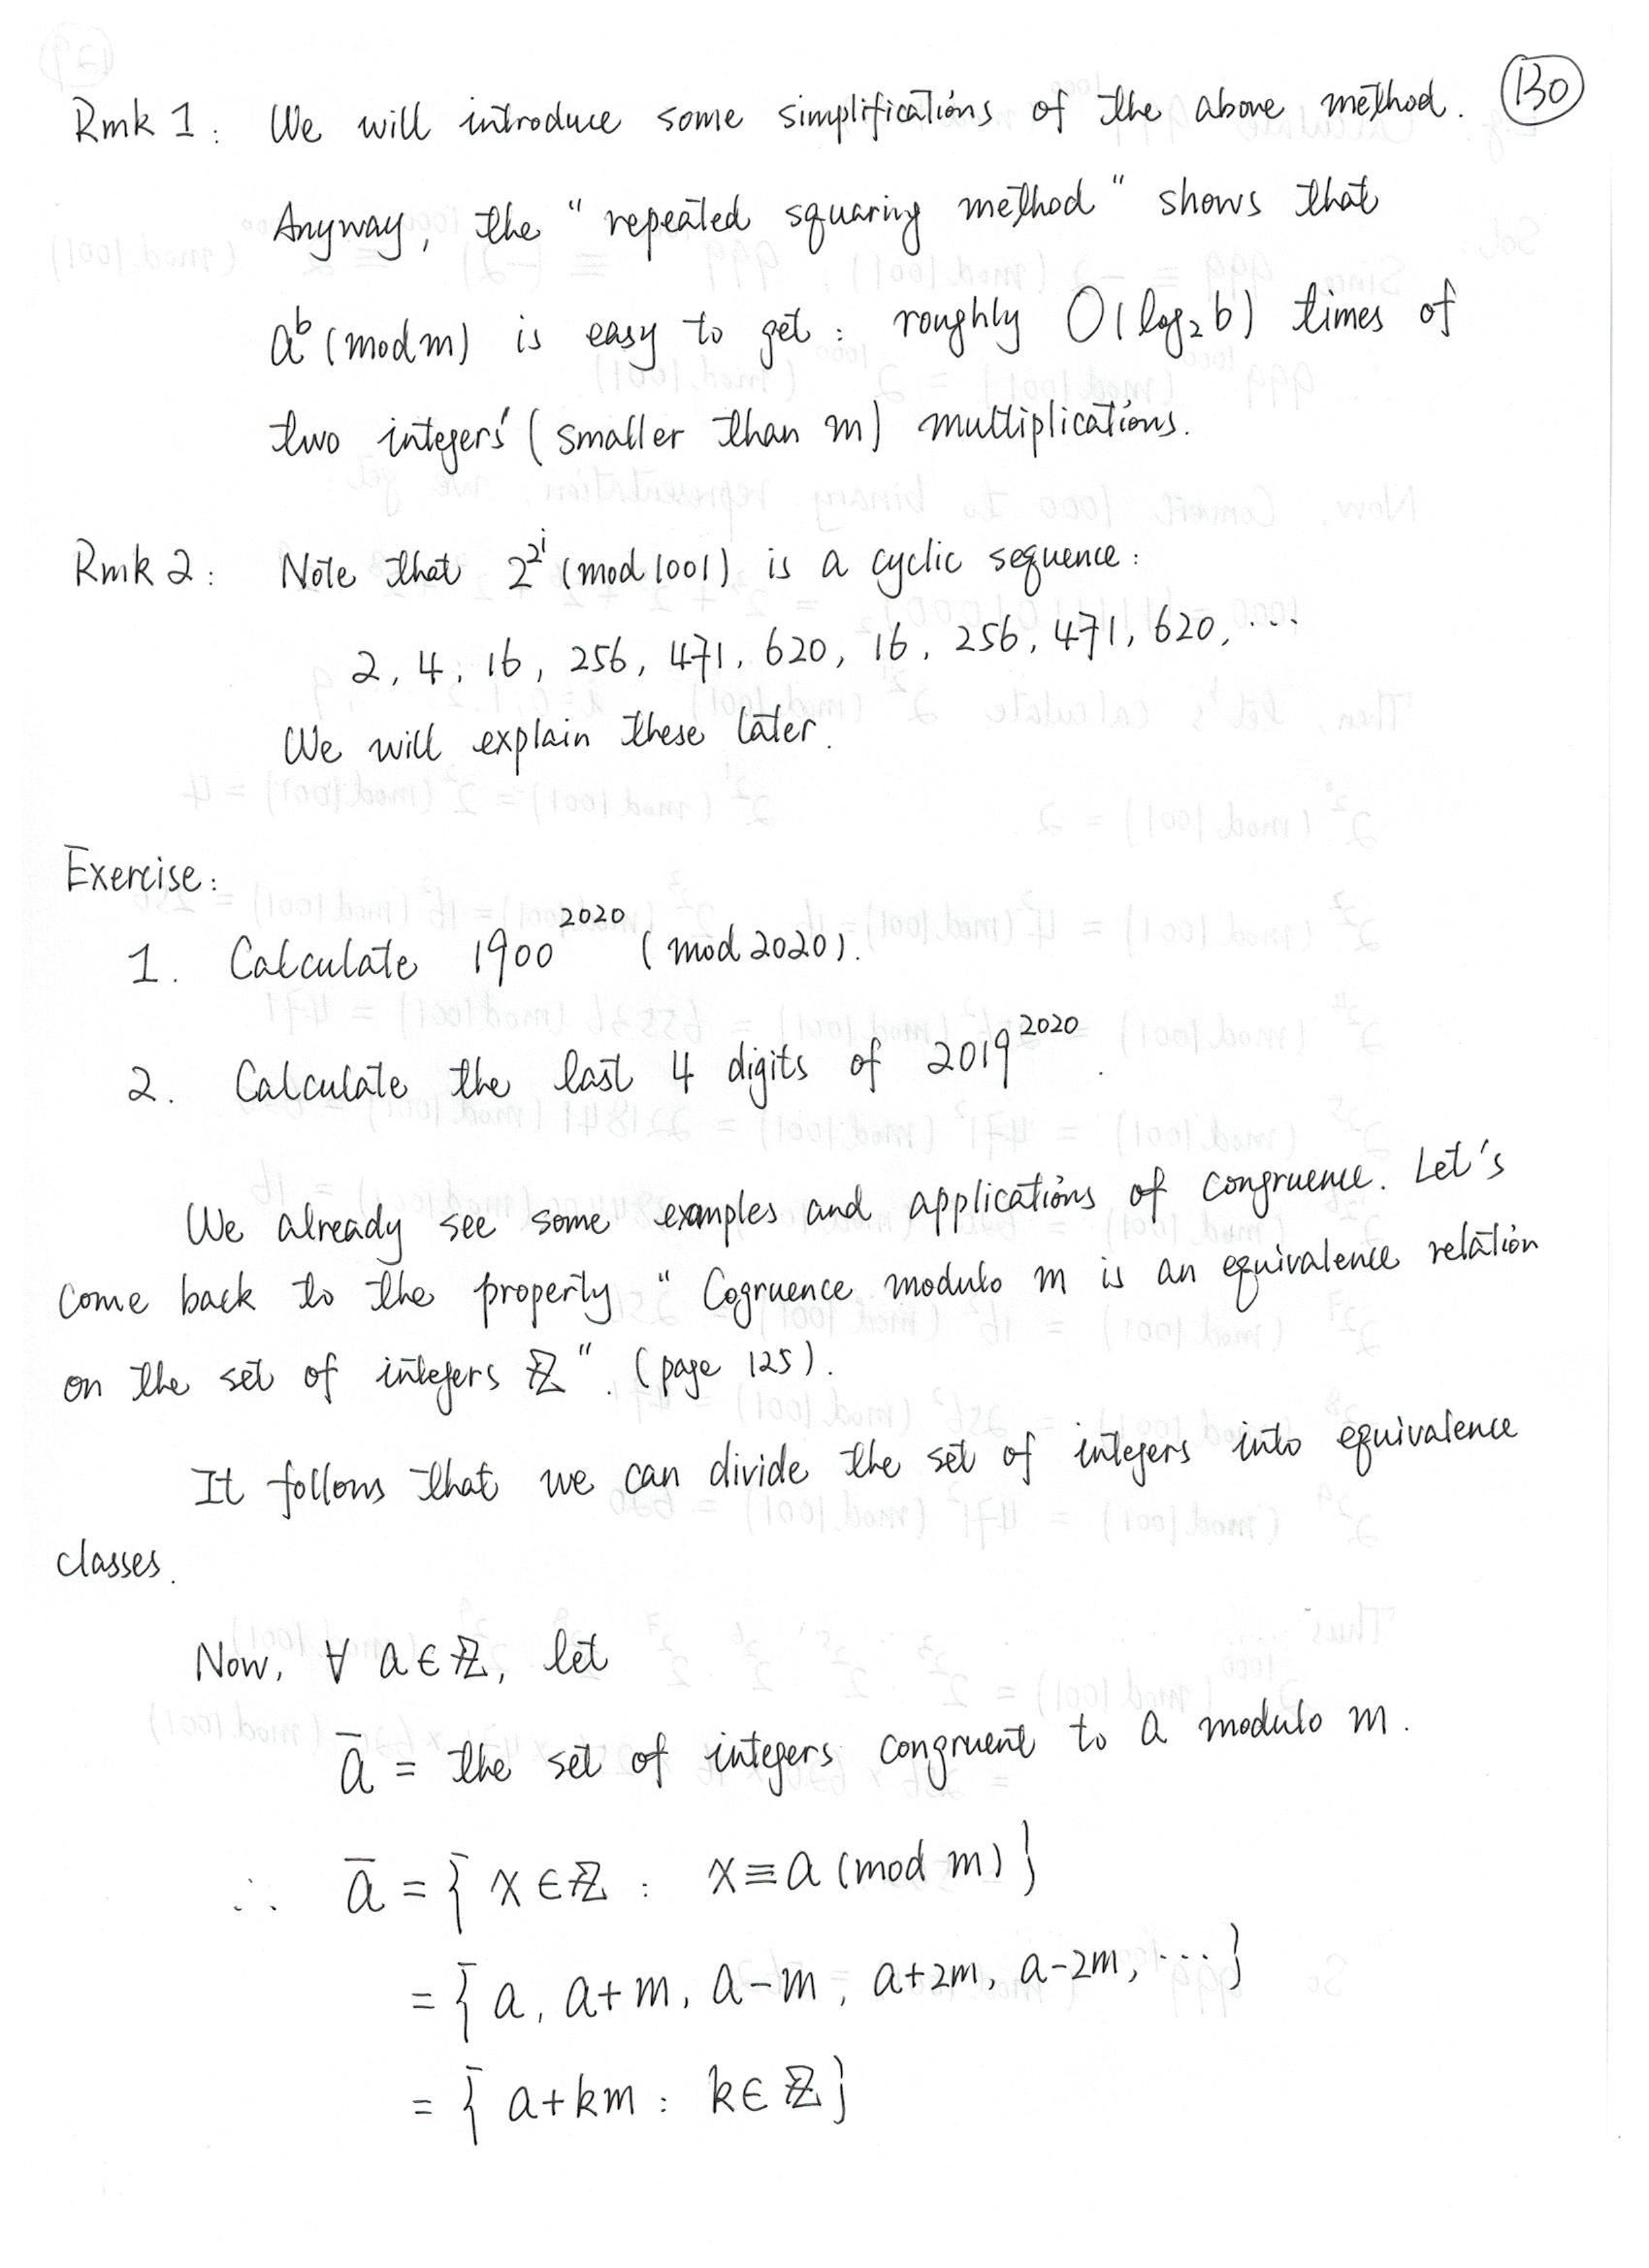 130
Rmk 1: We will introduce some simplifications of the above method.
Anyway, the "repeated squaring method" shows that
a^b (mod m) is easy to get: roughly O(log₂ b) times of
two integers' (smaller than m) multiplications.
Rmk 2: Note that 2^{2^i} (mod 1001) is a cyclic sequence:
2, 4, 16, 256, 471, 620, 16, 256, 471, 620, ...
We will explain these later.
Exercise:
1. Calculate 1900^{2020} (mod 2020).
2. Calculate the last 4 digits of 2019^{2020}.
We already see some examples and applications of congruence. Let's
come back to the property "Cogruence modulo m is an equivalence relation
on the set of integers ℤ". (page 125).
It follows that we can divide the set of integers into equivalence
classes.
Now, ∀ a∈ℤ, let
ā = the set of integers congruent to a modulo m.
∴ ā = { x∈ℤ : x≡a (mod m) }
= { a, a+m, a-m, a+2m, a-2m, ... }
= { a+km : k∈ℤ }